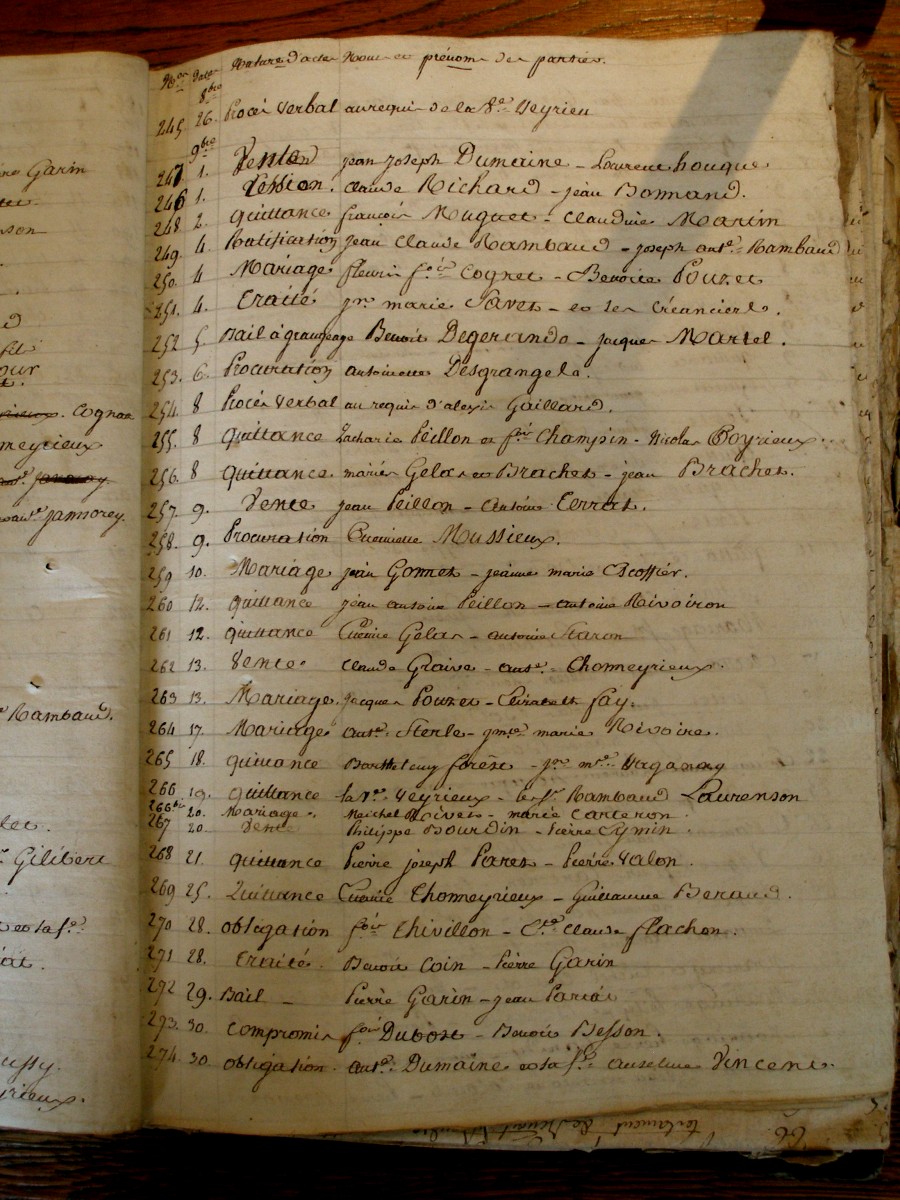 ns Garin
son
our
Cognas
meyrieux
jannorey.
Rambaud.
Gilibert
N.os date Nature d'actes Noms et prénoms des parties.
8bre
245 26. Procés verbal au requis de la Ve. Veyrieu
9bre
247 1. Vente jean joseph Dumaine - Laurent houque
246 1. Cession. claude Richard - jean Bonnand.
248 2. quittance françois Muguet - Claudine Martin
249. 4. Ratification jean Claude Rambaud - joseph ant.e Rambaud
250. 4 Mariage fleuri f.ois Cognet - Benoite Pouzet
251. 4. Traité jn. marie Savet - et ses Créanciers.
252 5 Bail à grangeage Benoit Degerando - jacques Martel.
253. 6. Procuration antoinette Desgranges.
254. 8 Procés verbal au requis d'alexis Gaillard.
255. 8 quittance Zacharie Peillon et f.ois Champin - Nicolas Poyrieux
256. 8 quittance. mariés Gelas et Brachet - jean Brachet.
257 9. Vente jean Peillon - antoine Terrat.
258. 9. Procuration Etiennette Mussieux.
259 10. Mariage jean Gonnet - jeanne marie Escoffier.
260 12. quittance jean antoine Peillon - antoine Rivoiron
261 12. quittance Etienne Gelas - antoine Staron
262 13. Vente claude Graive - ant.e Thomeyrieux.
263 13. Mariage. jacques Pouzet - Elizabeth fay.
264 17. Mariage ant.e Sterle - jn.e marie Rivoire.
265 18. quittance Barthelemy forest - jn. m.e Vaganay
266 19. quittance la Ve. Veyrieux - le Sr. Rambaud Laurenson
266bis 20. Mariage. Meichel Rivet - marie Carteron
267 20. Vente Philippe Bourdin - Pierre Cymin.
268 21. quittance Pierre joseph Paret - Pierre Valon.
269 25. Quittance Etienne Thomeyrieux - Guillaume Beraud.
270 28. obligation f.ois Thivillon - Claude flachon.
271 28. Traité Benoit Coin - Pierre Garin
272 29. Bail - Pierre Garin - jean
273. 30. Compromis f.ois Dubost - Benoit Besson.
274. 30. obligation ant.e Dumaine et sa f.e anselme Vincent.
testament de